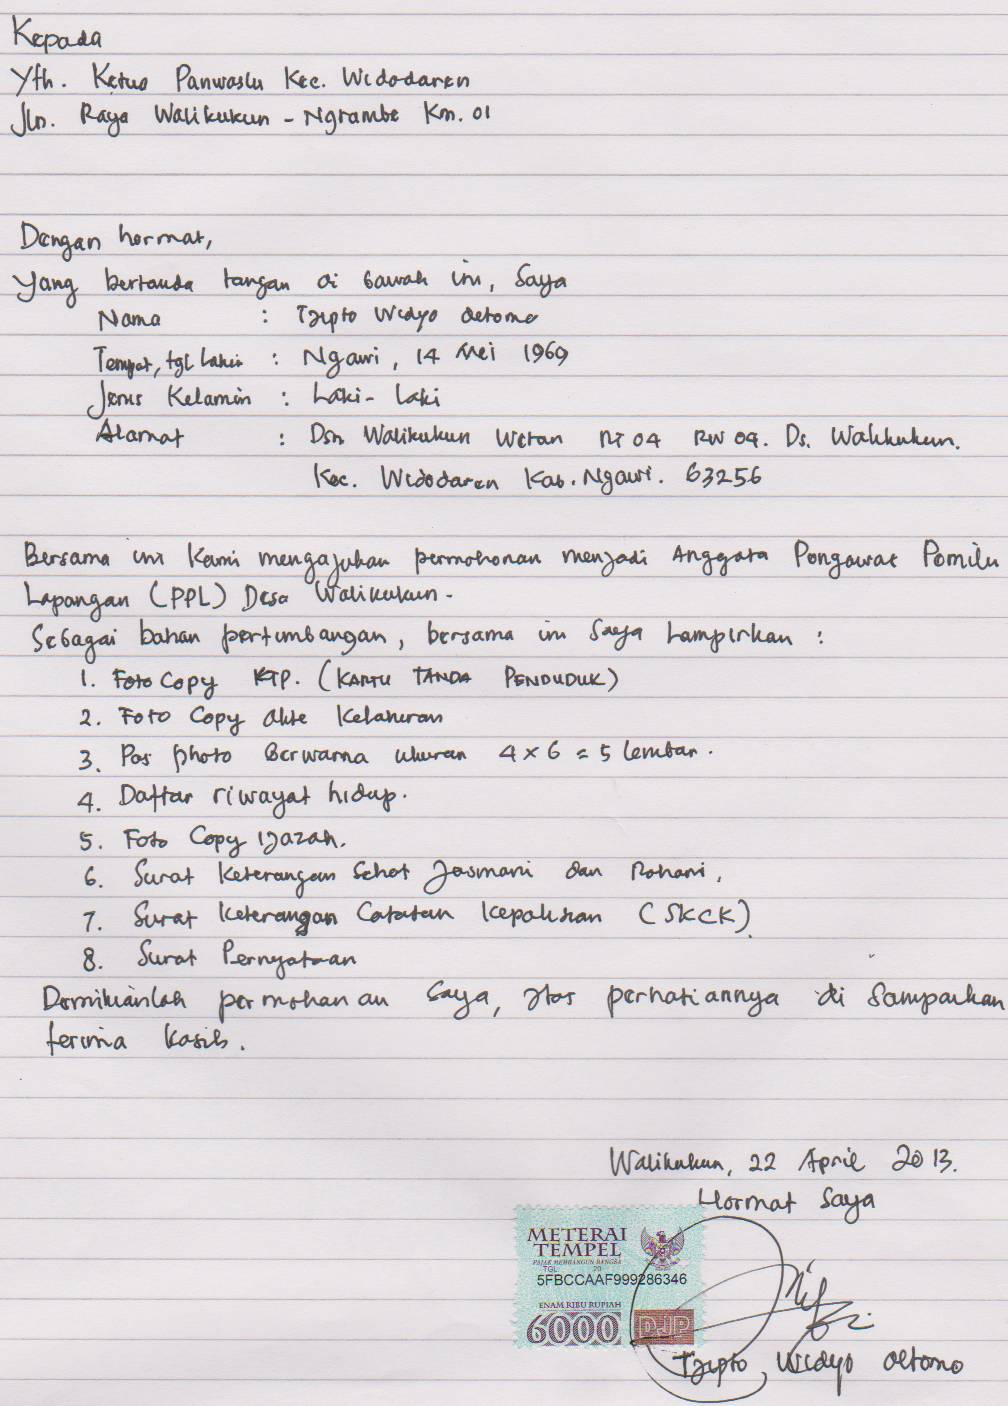 Kepada
Yth. Ketua Panwaslu Kec. Widodaren
Jln. Raya Walikukun - Ngrambe Km. 01
Dengan hormat,
Yang bertanda tangan di bawah ini, Saya
Nama : Tjipto Widyo Oetomo
Tempat, tgl Lahir : Ngawi, 14 Mei 1969
Jenis Kelamin : Laki - Laki
Alamat : Dsn Walikukun Wetan RT 04 RW 09. Ds. Walikukun.
Kec. Widodaren Kab. Ngawi. 63256
Bersama ini Kami mengajukan permohonan menjadi Anggota Pengawas Pemilu
Lapangan (PPL) Desa Walikukun.
Sebagai bahan pertimbangan, bersama ini Saya Lampirkan :
1. Foto Copy KTP. (KARTU TANDA PENDUDUK)
2. Foto Copy Akte Kelahiran
3. Pas photo Berwarna ukuran 4 x 6 = 5 lembar.
4. Daftar riwayat hidup.
5. Foto Copy Ijazah.
6. Surat Keterangan Sehat Jasmani dan Rohani,
7. Surat Keterangan Catatan Kepolisian (SKCK).
8. Surat Pernyataan
Demikianlah permohonan Saya, Atas perhatiannya di Sampaikan
terima Kasih.
Walikukun, 22 April 2013.
Hormat Saya
METERAI
TEMPEL
PAJAK MEMBANGUN BANGSA
TGL. 20
5FBCCAAF999286346
ENAM RIBU RUPIAH
6000 DJP
Tjipto Widyo Oetomo